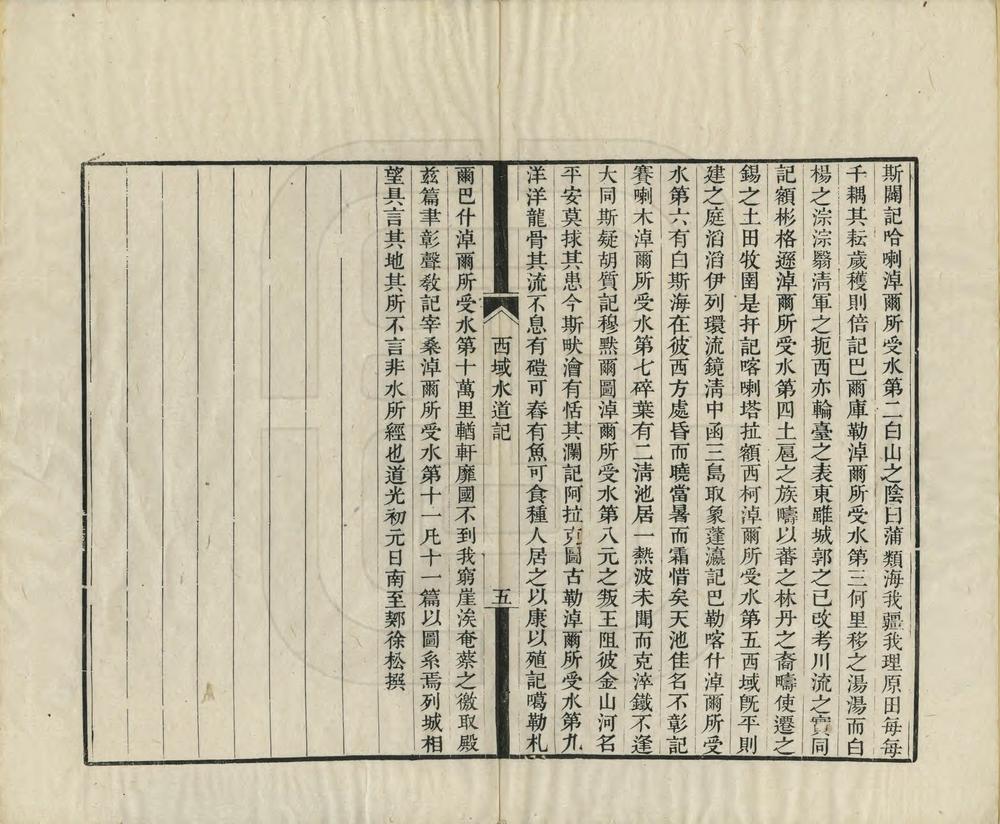 斯闢記哈喇淖爾所受水第二白山之陰曰蒲類海我疆我理原田每每
千耦其耘歲穫則倍記巴爾庫勒淖爾所受水第三何里移之湯湯而白
楊之淙淙翳清軍之扼西亦輪臺之表東雖城郭之已改考川流之實同
記額彬格遜淖爾所受水第四土扈之族疇以蕃之林丹之裔疇使遷之
錫之土田牧圉是扞記喀喇塔拉額西柯淖爾所受水第五西域旣平則
建之庭滔滔伊列環流鏡清中函三島取象蓬瀛記巴勒喀什淖爾所受
水第六有白斯海在彼西方處昏而曉當暑而霜惜矣天池佳名不彰記
賽喇木淖爾所受水第七碎葉有二清池居一熱波未聞而克淬鐵不逢
大同斯疑胡質記穆默爾圖淖爾所受水第八元之叛王阻彼金山河名
平安莫拯其患今斯畎澮有恬其瀾記阿拉克圖古勒淖爾所受水第九
洋洋龍骨其流不息有磑可舂有魚可食種人居之以康以殖記噶勒札
西域水道記
五
爾巴什淖爾所受水第十萬里輶軒靡國不到我窮崖涘奄蔡之徼取殿
茲篇聿彰聲敎記宰桑淖爾所受水第十一凡十一篇以圖系焉列城相
望具言其地其所不言非水所經也道光初元日南至鄚徐松撰